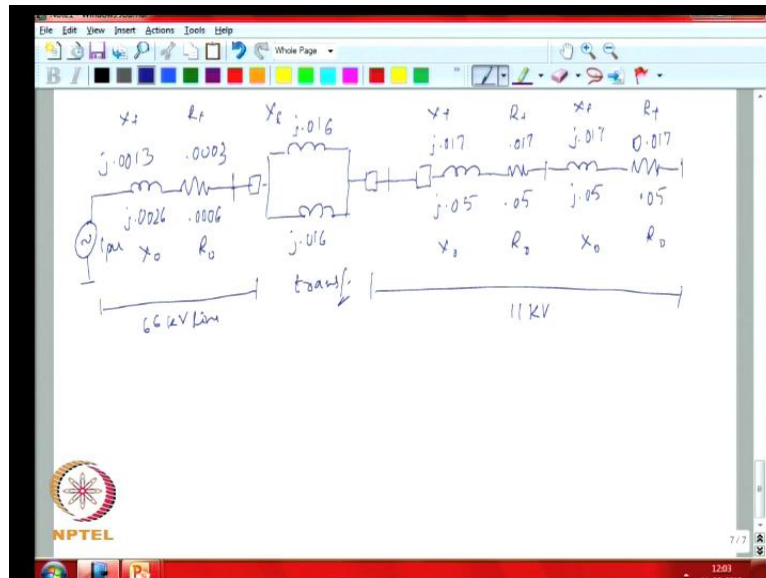 File Edit View Insert Actions Tools Help
Whole Page
B I
X+ R+ Xl j.016 X+ R+ X+ R+
j.0013 .0003 j.017 .017 j.017 0.017
j.0026 .0006 j.016 j.05 .05 j.05 .05
1pu X0 R0 X0 R0 X0 R0
66 kV Line transf. 11 KV
NPTEL
7/7
12:03